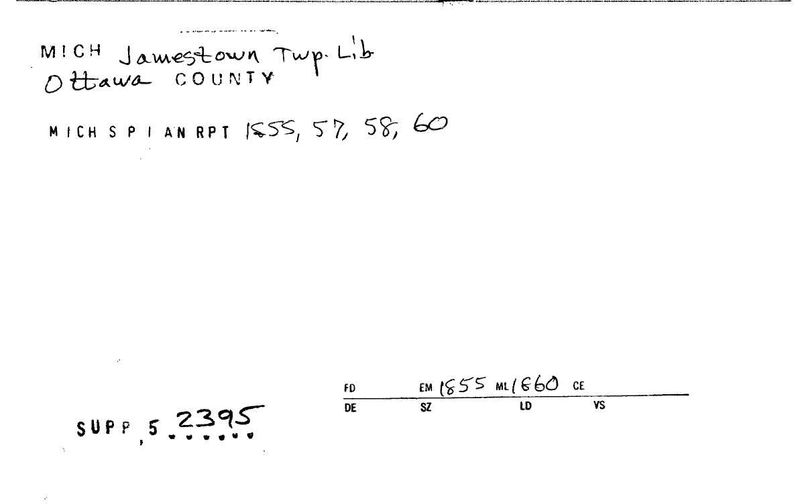 MICH Jamestown Twp. Lib
Ottawa COUNTY
MICH S P I AN RPT 1855, 57, 58, 60
FD EM 1855 ML 1860 CE
DE SZ LD VS
SUPP, 5 2395